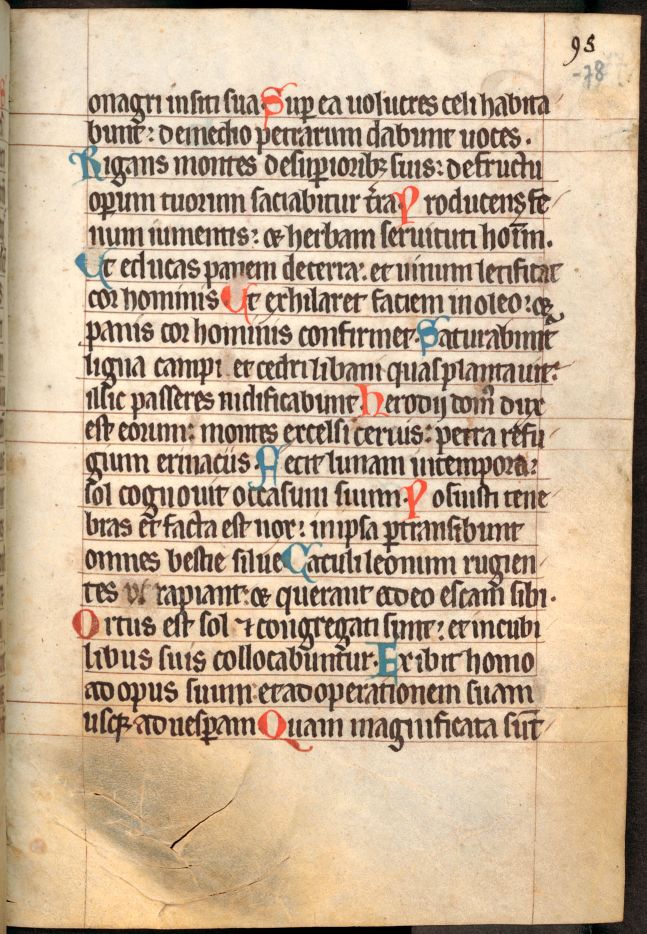 95
-78
onagri in siti sua Sup̲ ea uolucres celi habita
bunt̄: de medio petrarum dabunt uoces.
Rigans montes de sup̲iorib; suis: de fructu
op̲um tuorum saciabitur t̄ra P roducens fe
num iumentis: et herbam seruituti hom̄.
Ut educas panem de terra: et uinum letificat
cor hominis Ut exhilaret faciem in oleo: et
panis cor hominis confirmet. Saturabunt̄
ligna campi et cedri libani quas plantauit:
illic passeres nidificabunt. Herodij dom̄ dux
est eorum: montes excelsi ceruis: petra refu
gium erinaciis. Fecit lunam in tempora:
sol cognouit occasum suum. Posuisti tene
bras et facta est nox: in ipsa p̲transibunt
omnes bestie silue Catuli leonum rugien
tes vt rapiant: et querant a deo escam sibi.
Ortus est sol ⁊ congregati sunt: et in cubi
libus suis collocabuntur. Exibit homo
ad opus suum: et ad operationem suam
usq; ad uesp̲am Quam magnificata sūt